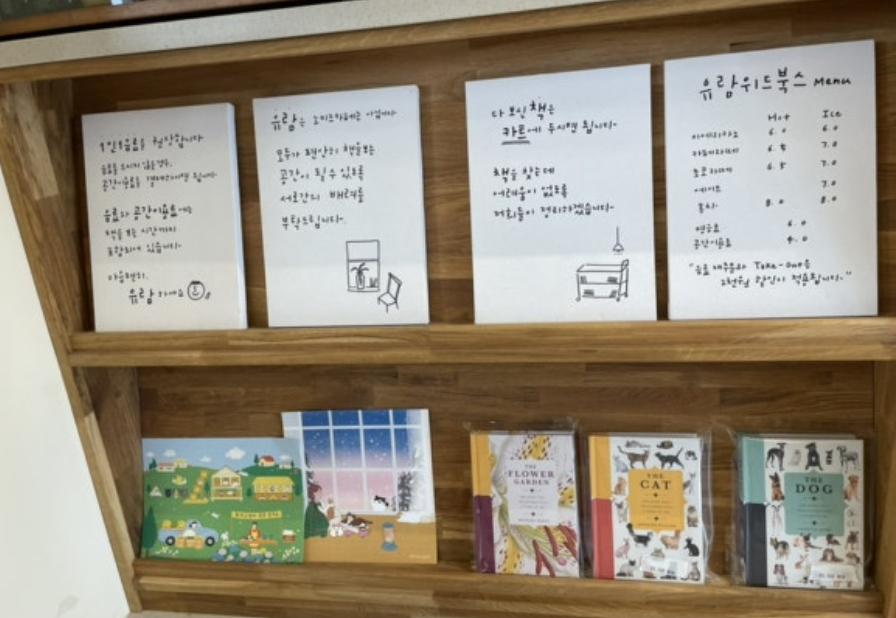 1인 1음료를 권장합니다
음료를 드시지 않을 경우,
공간이용료를 결제해주시면 됩니다.
음료와 공간이용료에는
책을 보는 시간까지
포함되어 있습니다.
마음편히,
유람 하세요
유람은 노키즈카페는 아닙니다
모두가 편안히 책을 보는
공간이 될 수 있도록
서로간의 배려를
부탁드립니다.
다 보신 책은
카트에 두시면 됩니다.
책을 찾는데
어려움이 없도록
저희들이 정리하겠습니다.
유람위드북스 Menu
Hot Ice
아메리카노 6.0 6.0
카페라떼 6.5 7.0
초코라떼 6.5 7.0
에이드 7.0
8.0 8.0
6.0
공간이용료 4.0
"음료 재주문와 Take-out은
2천원 할인이 적용됩니다."
THE
FLOWER
GARDEN
THE
CAT
THE
DOG